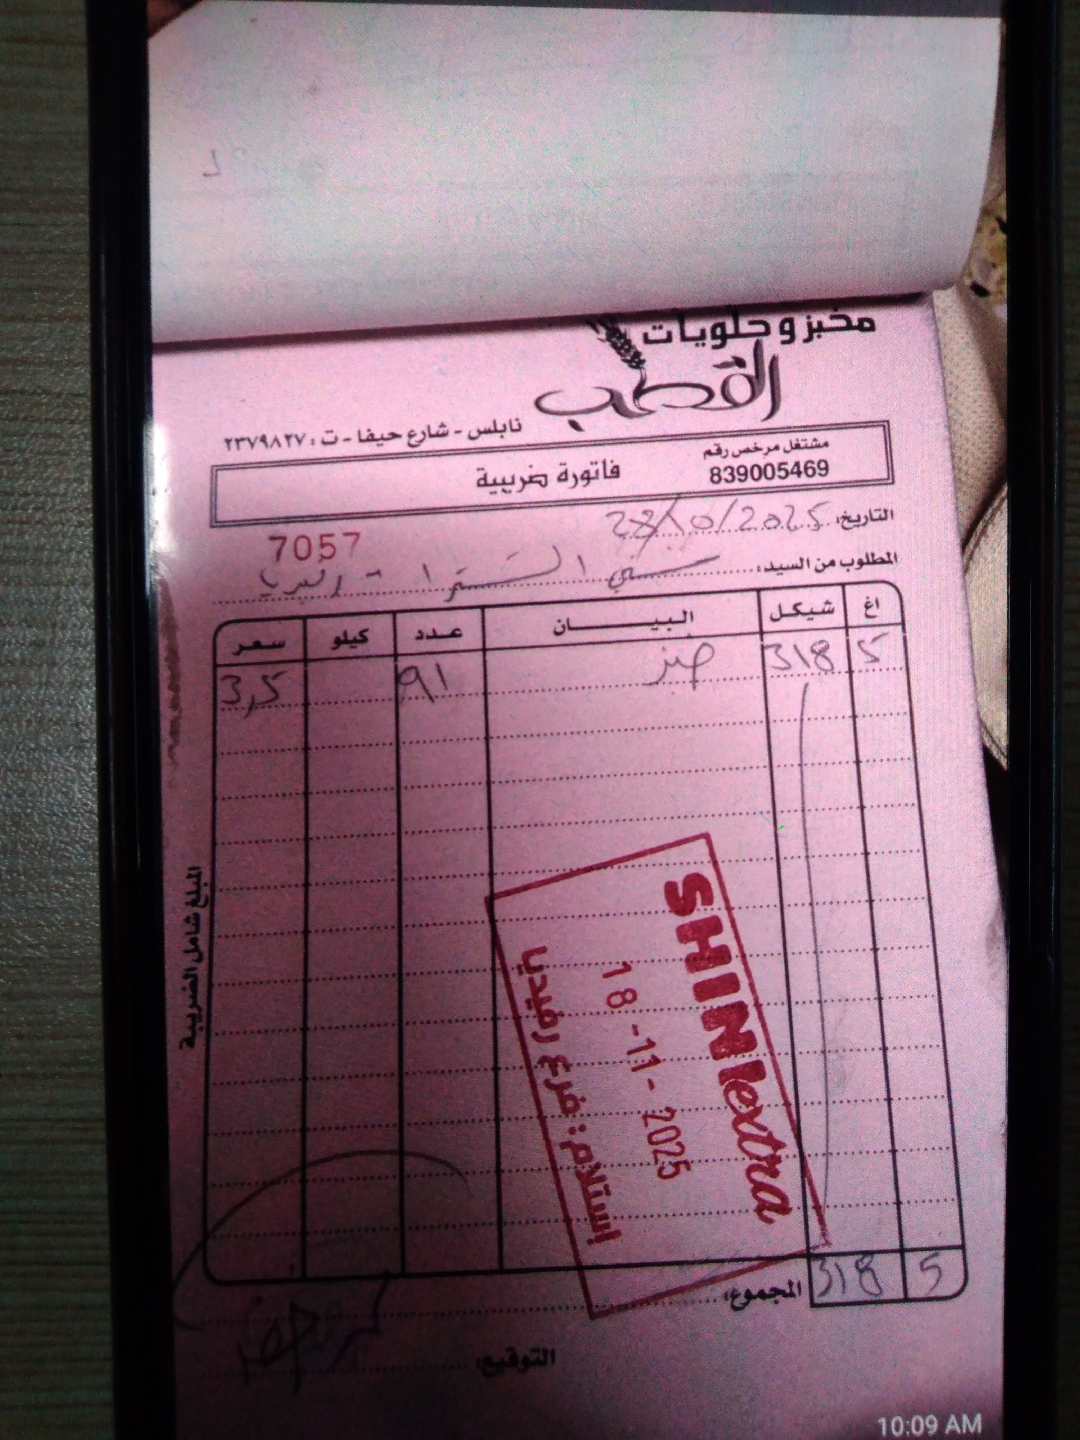 مخبز و حلويات
القطب
نابلس - شارع حيفا - ت : ٢٣٧٩٨٢٧
مشتغل مرخص رقم
فاتورة ضريبية 839005469
التاريخ: 28/10/2025
7057
المطلوب من السيد:
اغ شيكل البيــــان عدد كيلو سعر
5 318 خبز 91 3,5
المبلغ شامل الضريبة
SHINI extra
18-11-2025
إستلام: فرع رفيديا
المجموع: 318 5
التوقيع:
10:09 AM